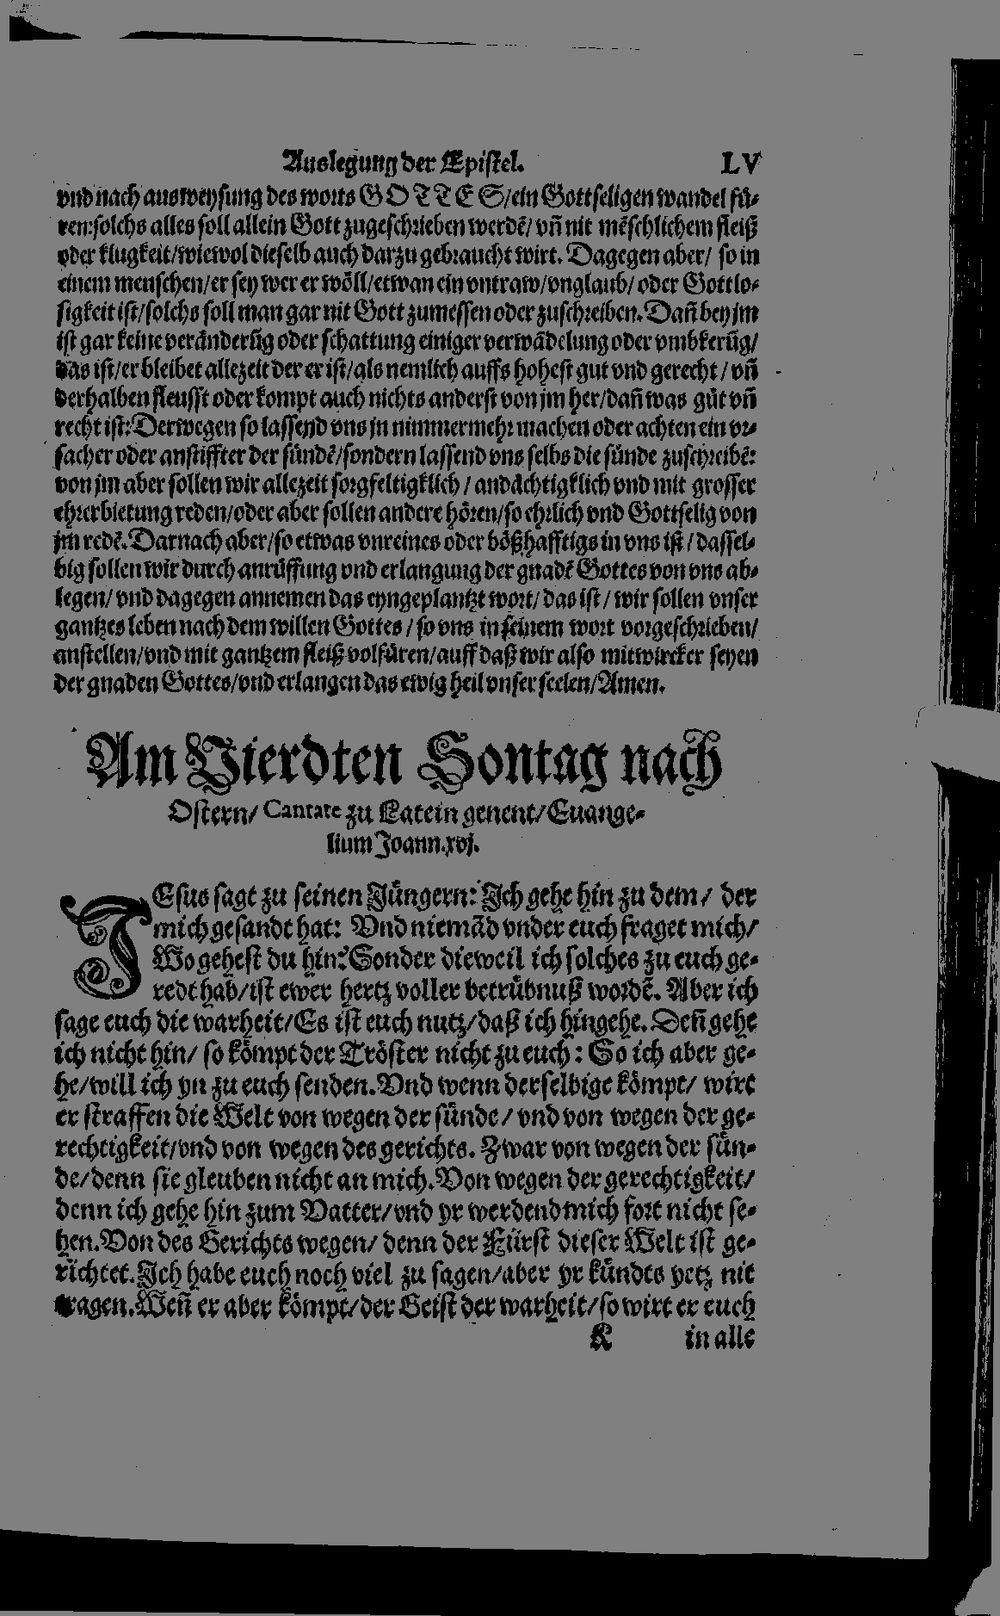 Auslegung der Epistel. LV
vnd nach ausweysung des worts GOTTES/ein Gottseligen wandel fü-
ren:solchs alles soll allein Gott zugeschrieben werdē/ vñ nit mēschlichem fleiß
oder klugkeit/wiewol dieselb auch darzu gebraucht wirt. Dagegen aber/ so in
einem menschen/er sey wer er wöll/etwan ein vntraw/vnglaub/ oder Gottlo-
sigkeit ist/solchs soll man gar nit Gott zumessen oder zuschreiben. Dañ bey jm
ist gar keine veränderūg oder schattung einiger verwādelung oder vmbkerūg/
das ist/er bleibet allezeit der er ist/als nemlich auffs hohest gut vnd gerecht/ vñ
derhalben fleusst oder kompt auch nichts anderst von jm her/dañ was gůt vñ
recht ist: Derwegen so lassend vns jn nimmermehr machen oder achten ein vr-
sacher oder anstiffter der sündē/sondern lassend vns selbs die sünde zuschreibē:
von jm aber sollen wir allezeit sorgfeltigklich/ andächtigklich vnd mit grosser
ehrerbietung reden/oder aber sollen andere hören/so ehrlich vnd Gottselig von
jm redē. Darnach aber/so etwas vnreines oder bößhafftigs in vns ist/ dassel-
big sollen wir durch anrüffung vnd erlangung der gnadē Gottes von vns ab-
legen/ vnd dagegen annemen das eyngeplantzt wort/ das ist/ wir sollen vnser
gantzes leben nach dem willen Gottes/ so vns in seinem wort vorgeschrieben/
anstellen/vnd mit gantzem fleiß volfüren/auff daß wir also mitwircker seyen
der gnaden Gottes/vnd erlangen das ewig heil vnser seelen/Amen.
Am Vierdten Sontag nach
Ostern/ Cantate zu Latein genent/Euange-
lium Joann.xvj.
JEsus sagt zu seinen Jüngern: Ich gehe hin zu dem/ der
mich gesandt hat: Vnd niemād vnder euch fraget mich/
Wo gehest du hin? Sonder dieweil ich solches zu euch ge-
redt hab/ist ewer hertz voller betrübnuß wordē. Aber ich
sage euch die warheit/Es ist euch nutz/daß ich hingehe. Deñ gehe
ich nicht hin/ so kömpt der Tröster nicht zu euch: So ich aber ge-
he/will ich yn zu euch senden. Vnd wenn derselbige kömpt/ wirt
er straffen die Welt von wegen der sünde/ vnd von wegen der ge-
rechtigkeit/vnd von wegen des gerichts. Zwar von wegen der sün-
de/denn sie gleuben nicht an mich. Von wegen der gerechtigkeit/
denn ich gehe hin zum Vatter/vnd yr werdend mich fort nicht se-
hen. Von des Gerichts wegen/ denn der Fürst dieser Welt ist ge-
richtet. Ich habe euch noch viel zu sagen/aber yr kündts yetz nit
tragen. Weñ er aber kömpt/der Geist der warheit/so wirt er euch
K in alle